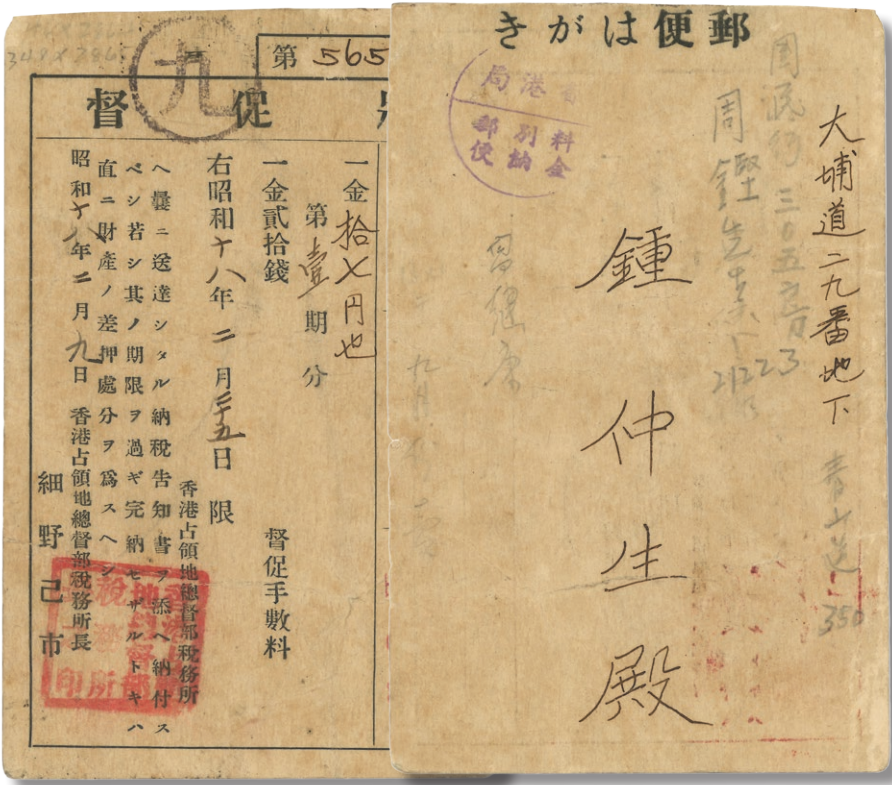 第 565
督促
九
一金拾七円也
第壹期分
一金貳拾錢 督促手數料
右昭和十八年二月二十五日限
香港占領地總督部税務所
ヘ曩ニ送達シタル納税告知書ヲ添ヘ納付ス
ベシ若シ其ノ期限ヲ過ギ完納セザルトキハ
直ニ財産ノ差押處分ヲ爲スヘシ
昭和十八年二月九日 香港占領地總督部税務所長
細野己市
郵便はがき
港局
料金
別納
郵便
大埔道二九番地下
鍾仲生殿
周鏗先生
350